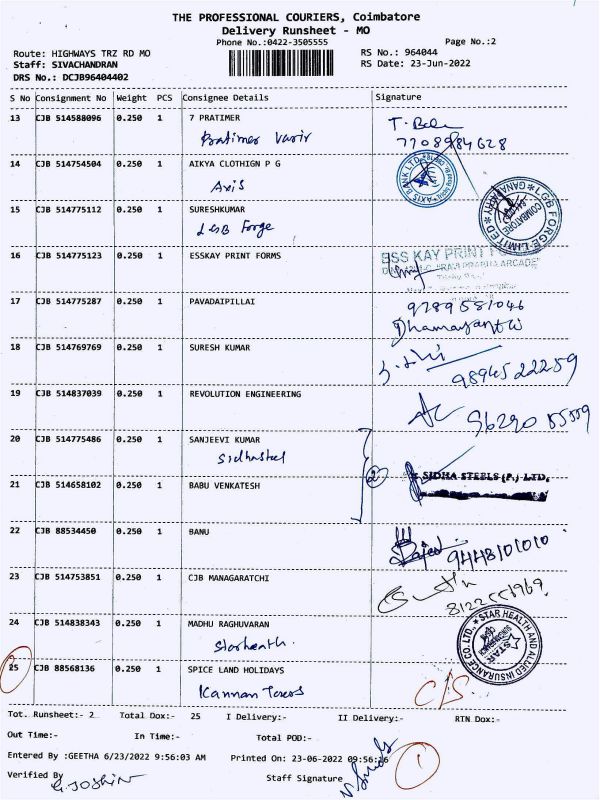 THE PROFESSIONAL COURIERS, Coimbatore
Delivery Runsheet - MO
Phone No.:0422-3505555
Page No.:2
Route: HIGHWAYS TRZ RD MO
RS No.: 964044
Staff: SIVACHANDRAN
RS Date: 23-Jun-2022
DRS No.: DCJB96404402
S No Consignment No Weight PCS Consignee Details Signature
13 CJB 514588096 0.250 1 7 PRATIMER
T. Bala
7708984628
14 CJB 514754504 0.250 1 AIKYA CLOTHIGN P G
Axis
AXIS BANK LTD
15 CJB 514775112 0.250 1 SURESHKUMAR
LGB Forge
LGB FORGE LIMITED
COIMBATORE
16 CJB 514775123 0.250 1 ESSKAY PRINT FORMS
ESS KAY PRINT
17 CJB 514775287 0.250 1 PAVADAIPILLAI
9789581046
Dhamayanthi
18 CJB 514769769 0.250 1 SURESH KUMAR
9894522259
19 CJB 514837039 0.250 1 REVOLUTION ENGINEERING
96290 85559
20 CJB 514775486 0.250 1 SANJEEVI KUMAR
Sidhasteel
2
SIDHA STEELS (P.) LTD,
21 CJB 514658102 0.250 1 BABU VENKATESH
22 CJB 88534450 0.250 1 BANU
9443101010
23 CJB 514753851 0.250 1 CJB MANAGARATCHI
24 CJB 514838343 0.250 1 MADHU RAGHUVARAN
Starhealth
STAR HEALTH AND ALLIED INSURANCE CO. LTD.,
STAR
25 CJB 88568136 0.250 1 SPICE LAND HOLIDAYS
Kannan Towers
C/S
Tot. Runsheet:- 2 Total Dox:- 25 I Delivery:- II Delivery:- RTN Dox:-
Out Time:- In Time:- Total POD:-
Entered By :GEETHA 6/23/2022 9:56:03 AM Printed On: 23-06-2022 09:56:16
1
Verified By
Staff Signature